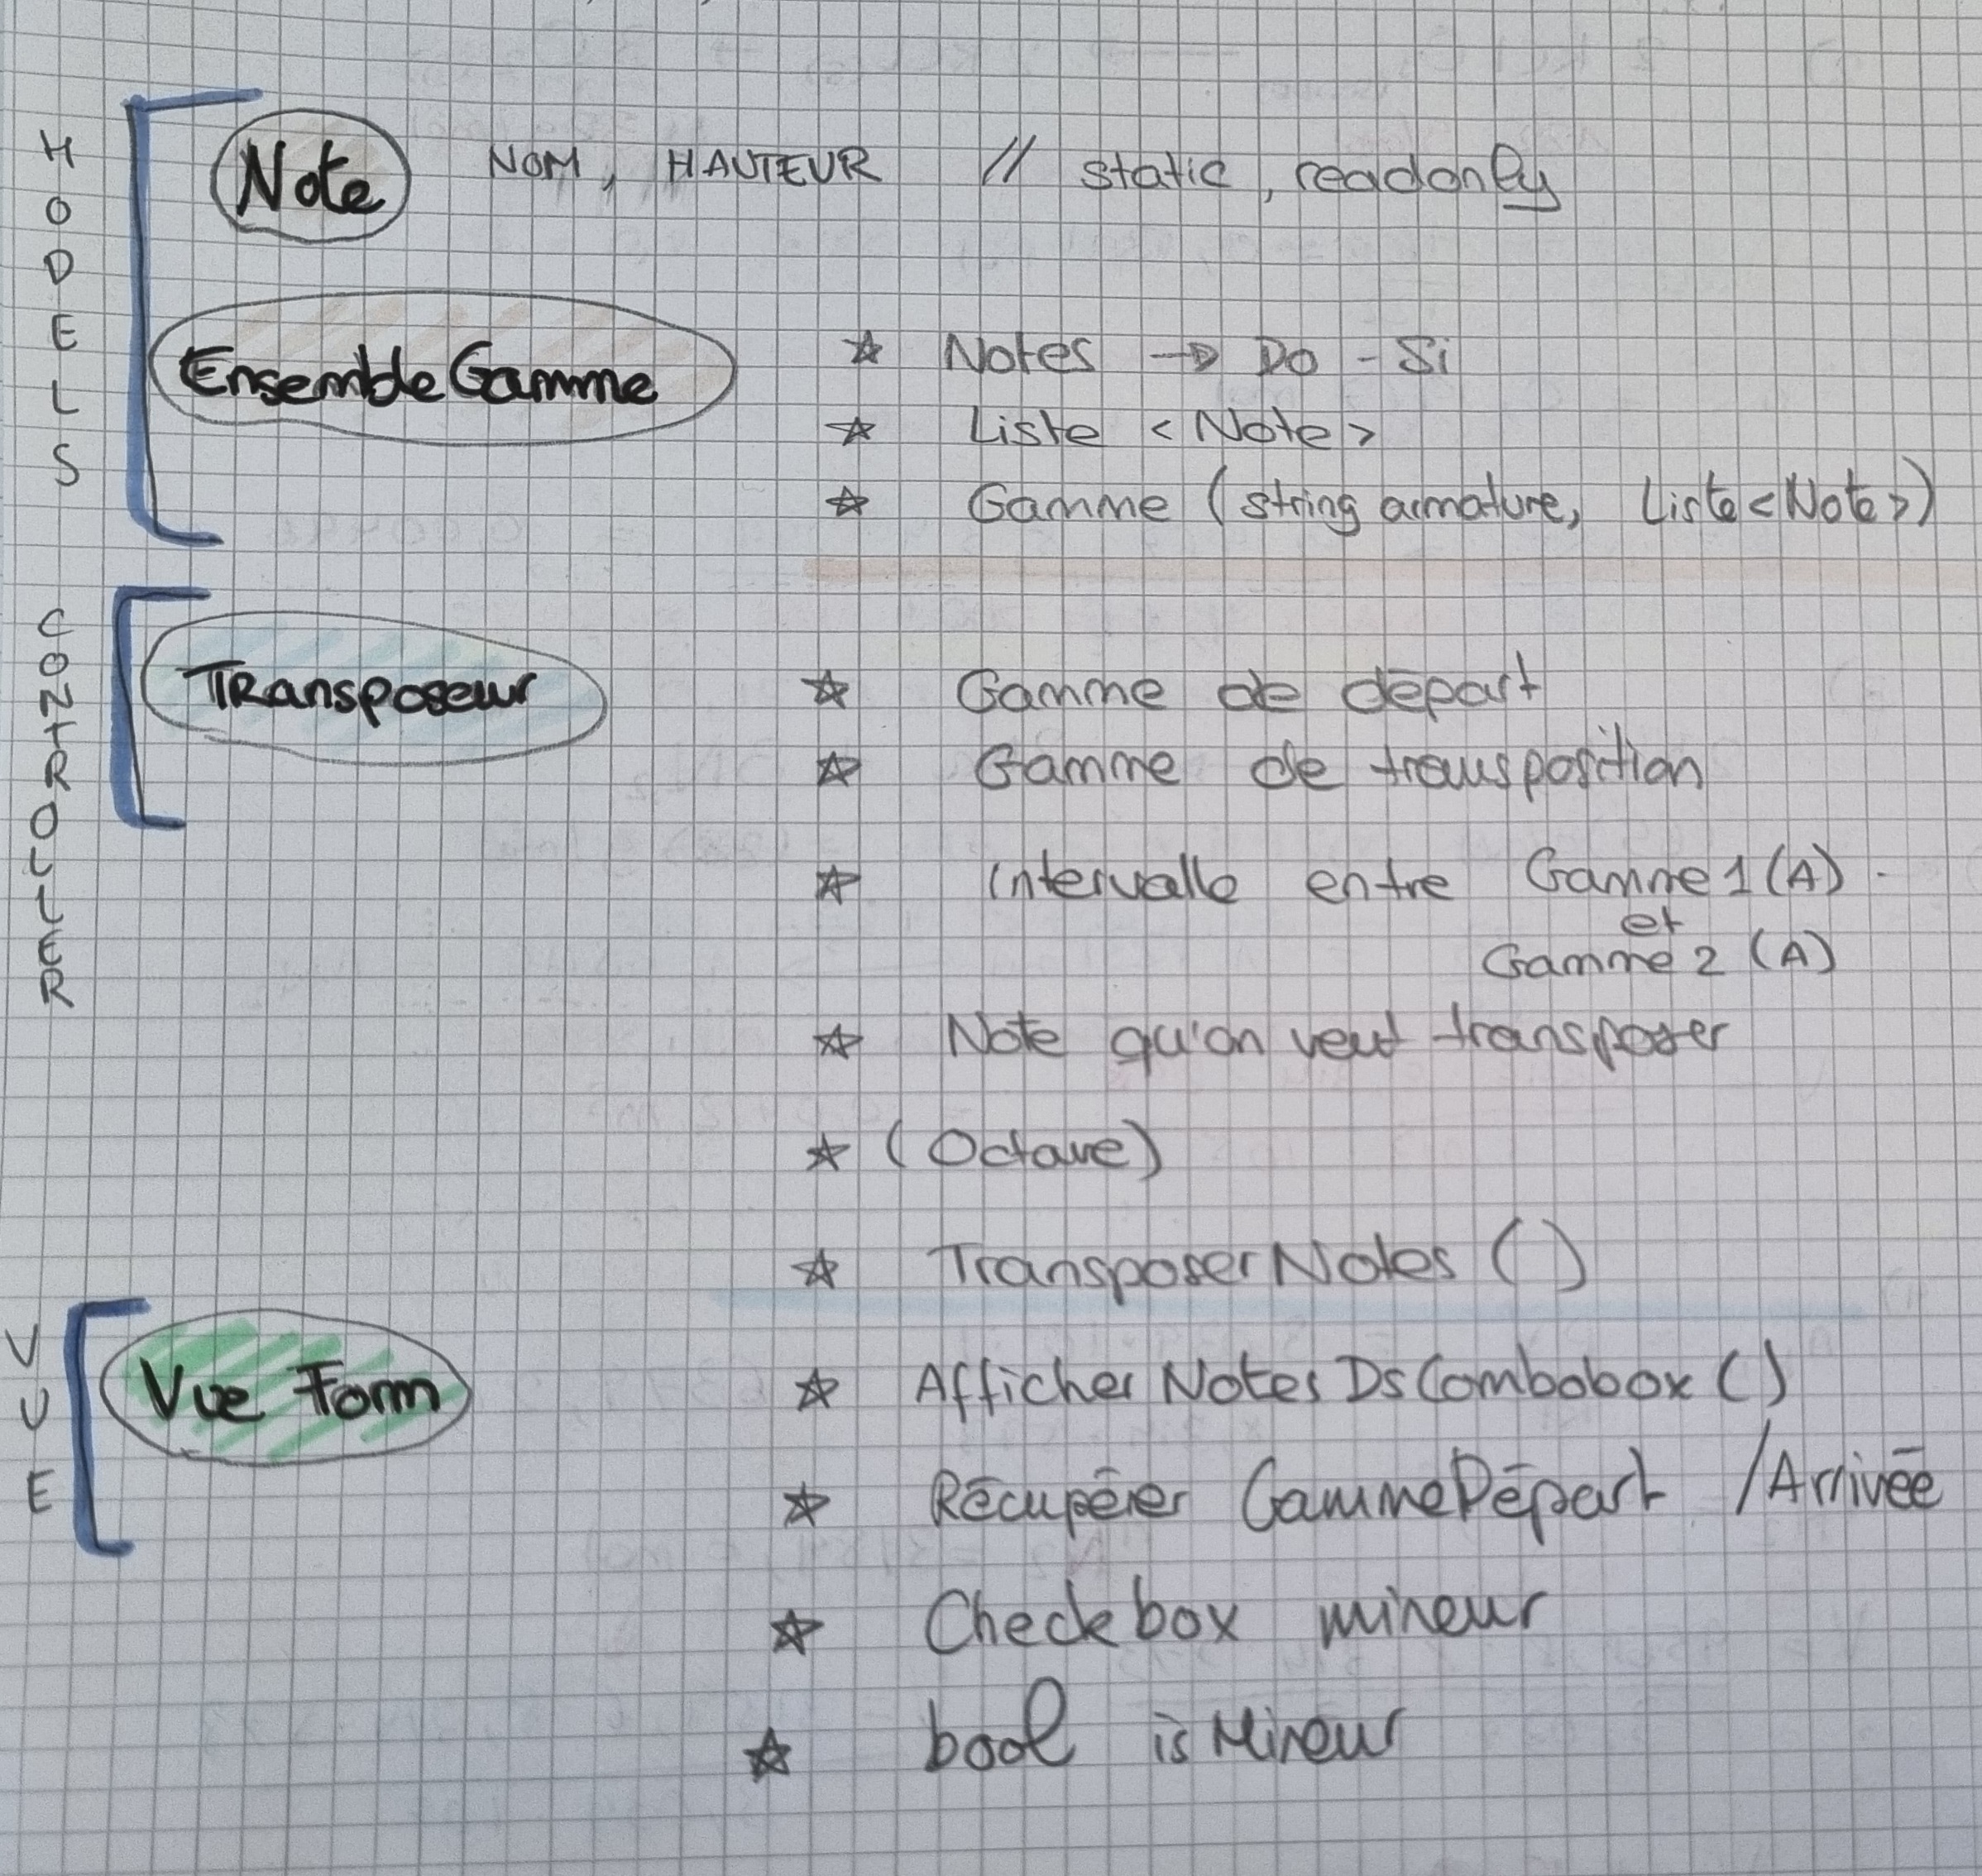 MODELS
Note NOM, HAUTEUR // static, readonly
EnsembleGamme ☆ Notes → Do - Si
☆ Liste <Note>
☆ Gamme (string armature, Liste<Note>)
CONTROLLER
Transposeur ☆ Gamme de départ
☆ Gamme de transposition
☆ Intervalle entre Gamme 1 (A)
et
Gamme 2 (A)
☆ Note qu'on veut transposer
☆ (Octave)
☆ TransposerNotes ()
VUE
Vue Form ☆ AfficherNotesDsCombobox ()
☆ Récupérer GammeDépart /Arrivée
☆ Checkbox mineur
☆ bool isMineur